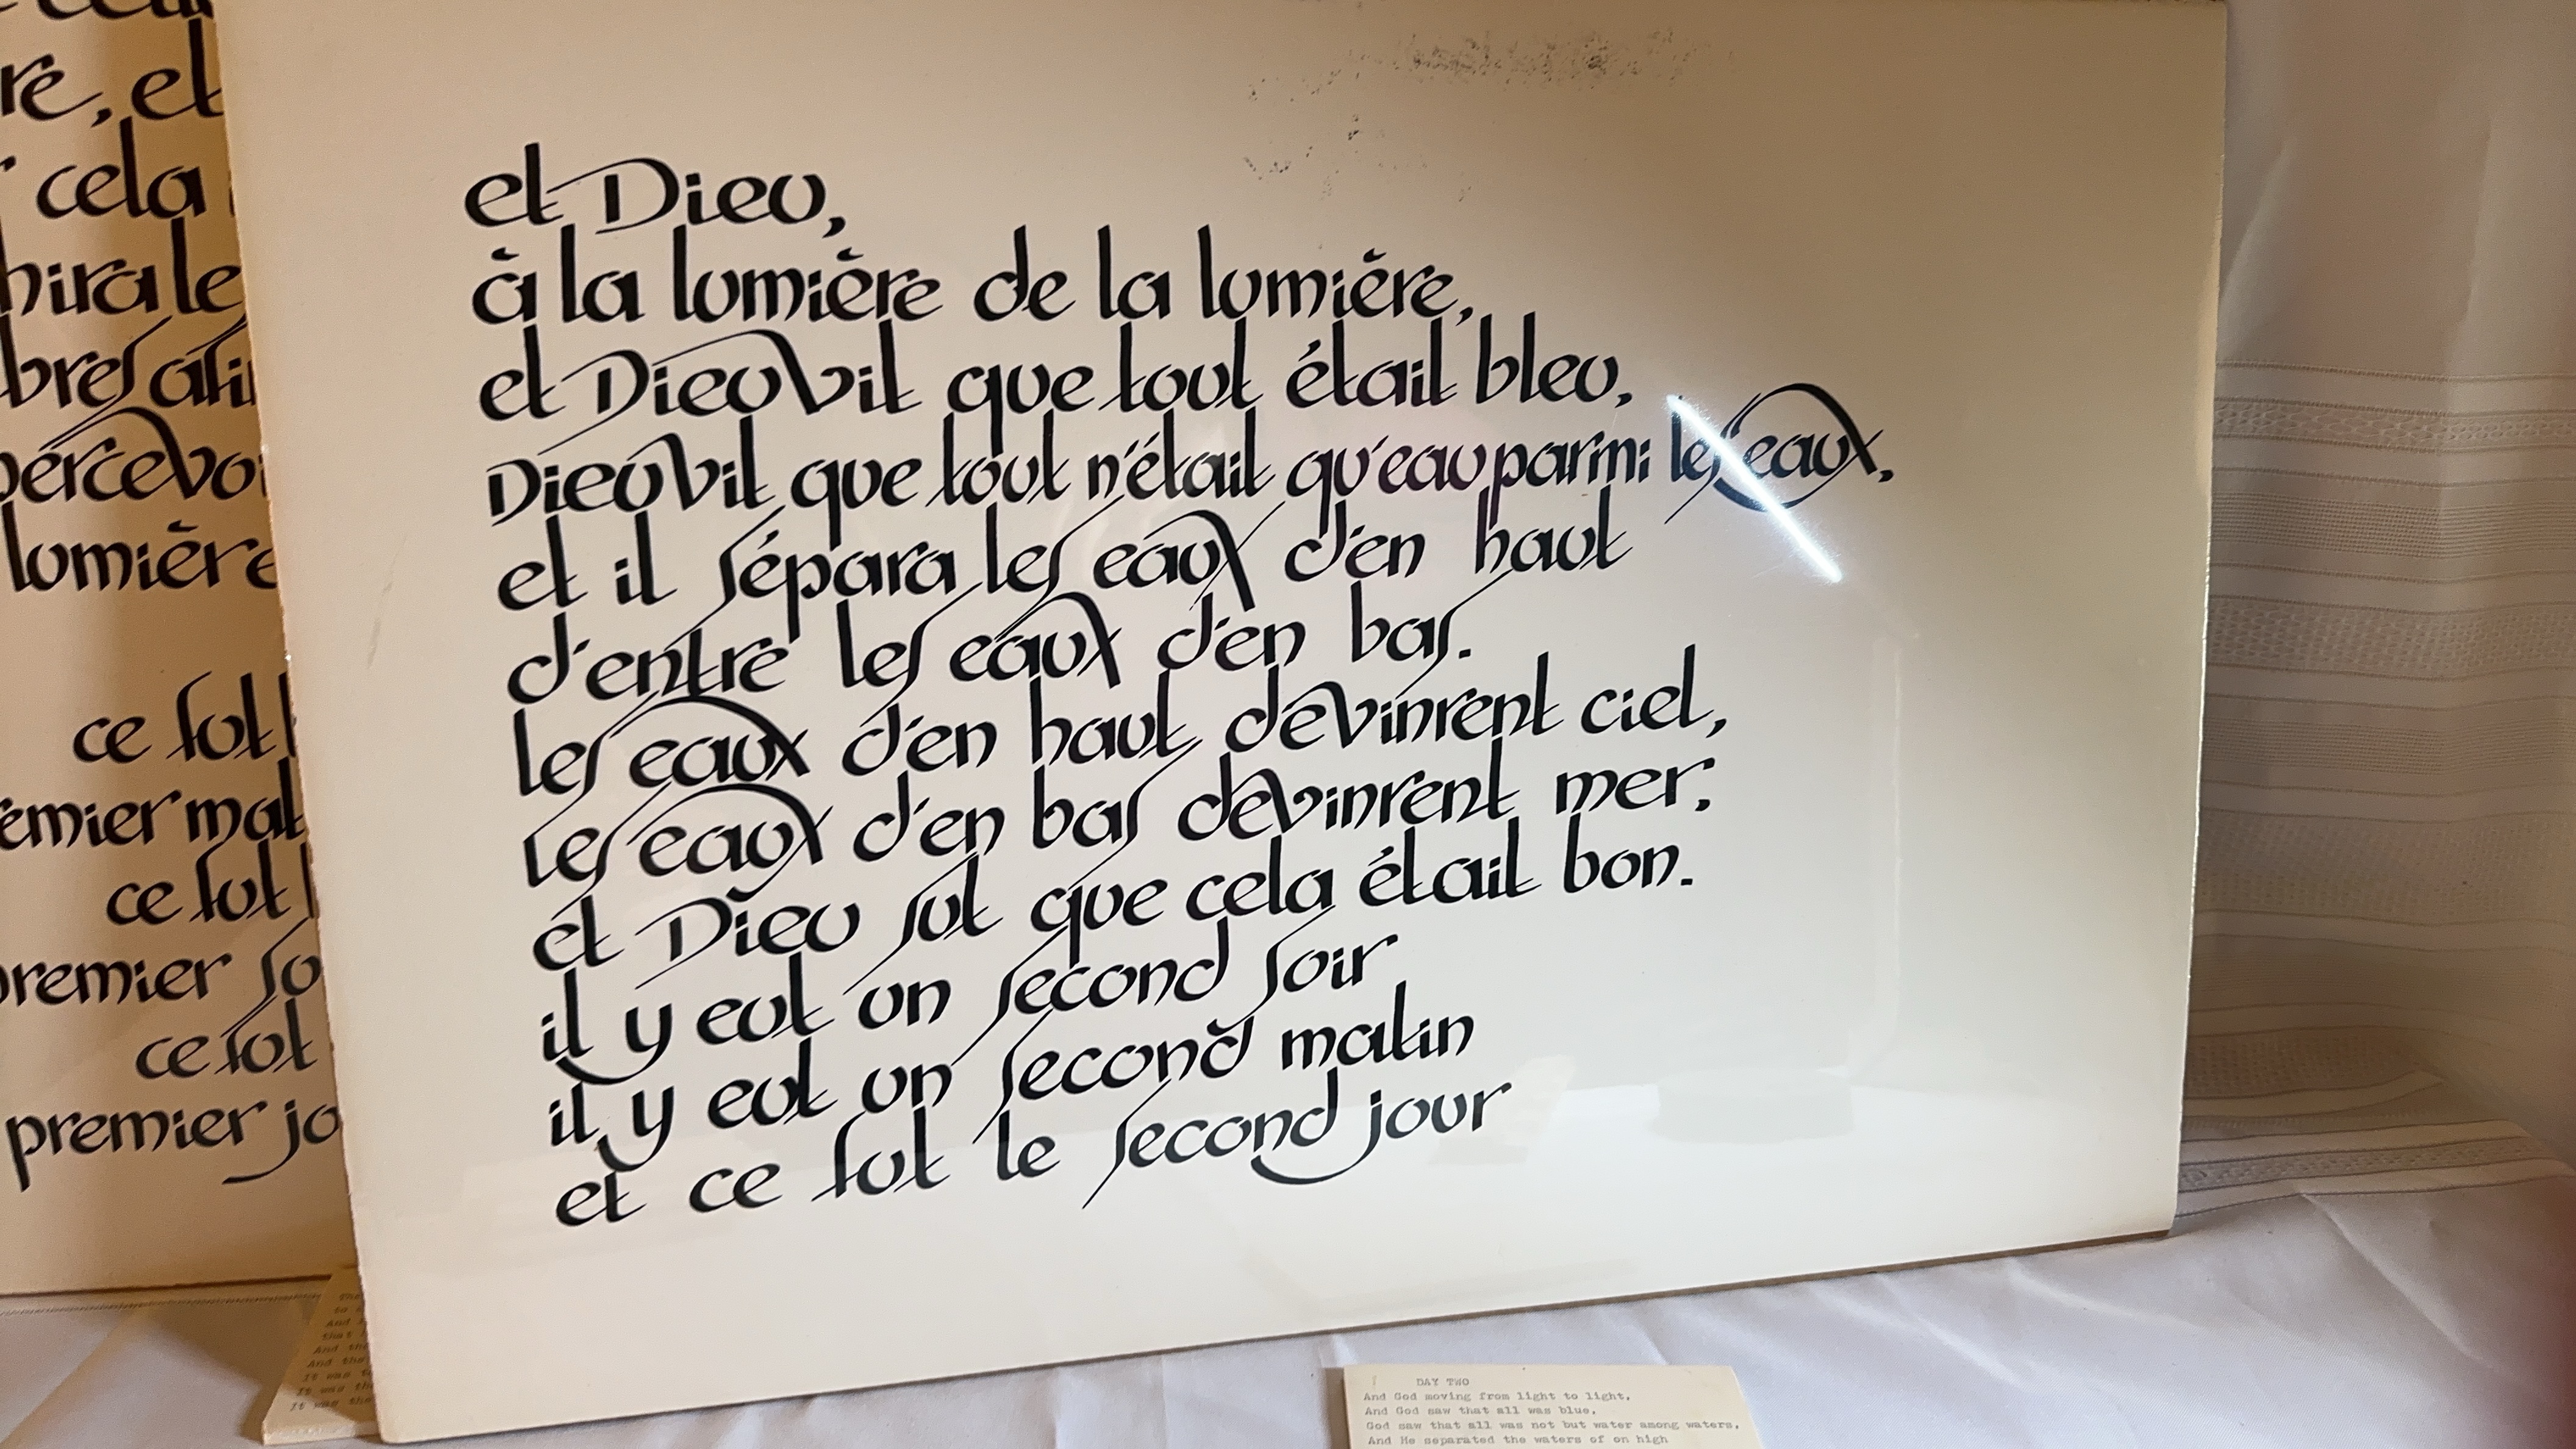 ré, et
cela
hira le
percevoi
lumière
ce fut
ce fut
premier so
ce fut
premier jo
et Dieu,
à la lumière de la lumière,
et Dieu vit que tout était bleu,
Dieu vit que tout n'était qu'eau parmi les eaux,
et il sépara les eaux d'en haut
d'entre les eaux d'en bas.
les eaux d'en haut devinrent ciel,
les eaux d'en bas devinrent mer;
et Dieu sut que cela était bon.
il y eut un second soir
il y eut un second matin
et ce fut le second jour
DAY TWO
And God moving from light to light,
And God saw that all was blue,
God saw that all was not but water among waters,
And He separated the waters of on high